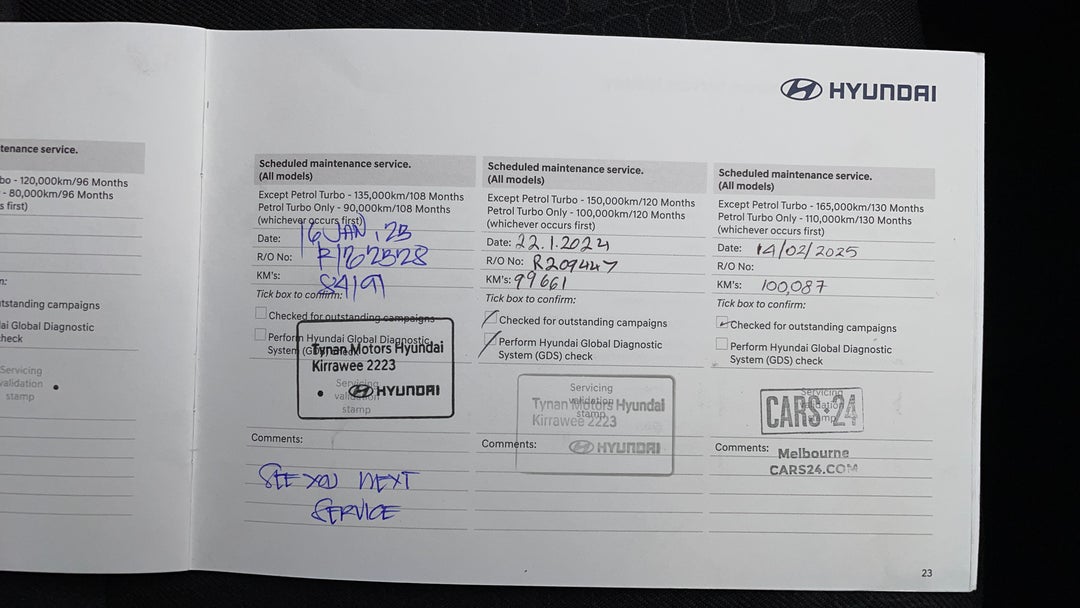 tenance service.
bo - 120,000km/96 Months
- 80,000km/96 Months
s first)
n:
utstanding campaigns
ai Global Diagnostic
check
Servicing
validation
stamp
HYUNDAI
Scheduled maintenance service.
(All models)
Except Petrol Turbo - 135,000km/108 Months
Petrol Turbo Only - 90,000km/108 Months
(whichever occurs first)
Date: 16 JAN, 23
R/O No: R/202328
KM's: 84191
Tick box to confirm:
Checked for outstanding campaigns
Perform Hyundai Global Diagnostic
System (GDS) check
Tynan Motors Hyundai
Kirrawee 2223
HYUNDAI
Servicing
validation
stamp
Comments:
SEE YOU NEXT
SERVICE
Scheduled maintenance service.
(All models)
Except Petrol Turbo - 150,000km/120 Months
Petrol Turbo Only - 100,000km/120 Months
(whichever occurs first)
Date: 22.1.2024
R/O No: R209447
KM's: 99661
Tick box to confirm:
Checked for outstanding campaigns
Perform Hyundai Global Diagnostic
System (GDS) check
Servicing
validation
stamp
Tynan Motors Hyundai
Kirrawee 2223
HYUNDAI
Comments:
Scheduled maintenance service.
(All models)
Except Petrol Turbo - 165,000km/130 Months
Petrol Turbo Only - 110,000km/130 Months
(whichever occurs first)
Date: 14/02/2025
R/O No:
KM's: 100,087
Tick box to confirm:
Checked for outstanding campaigns
Perform Hyundai Global Diagnostic
System (GDS) check
Servicing
validation
stamp
CARS24
Comments: Melbourne
CARS24.COM
23